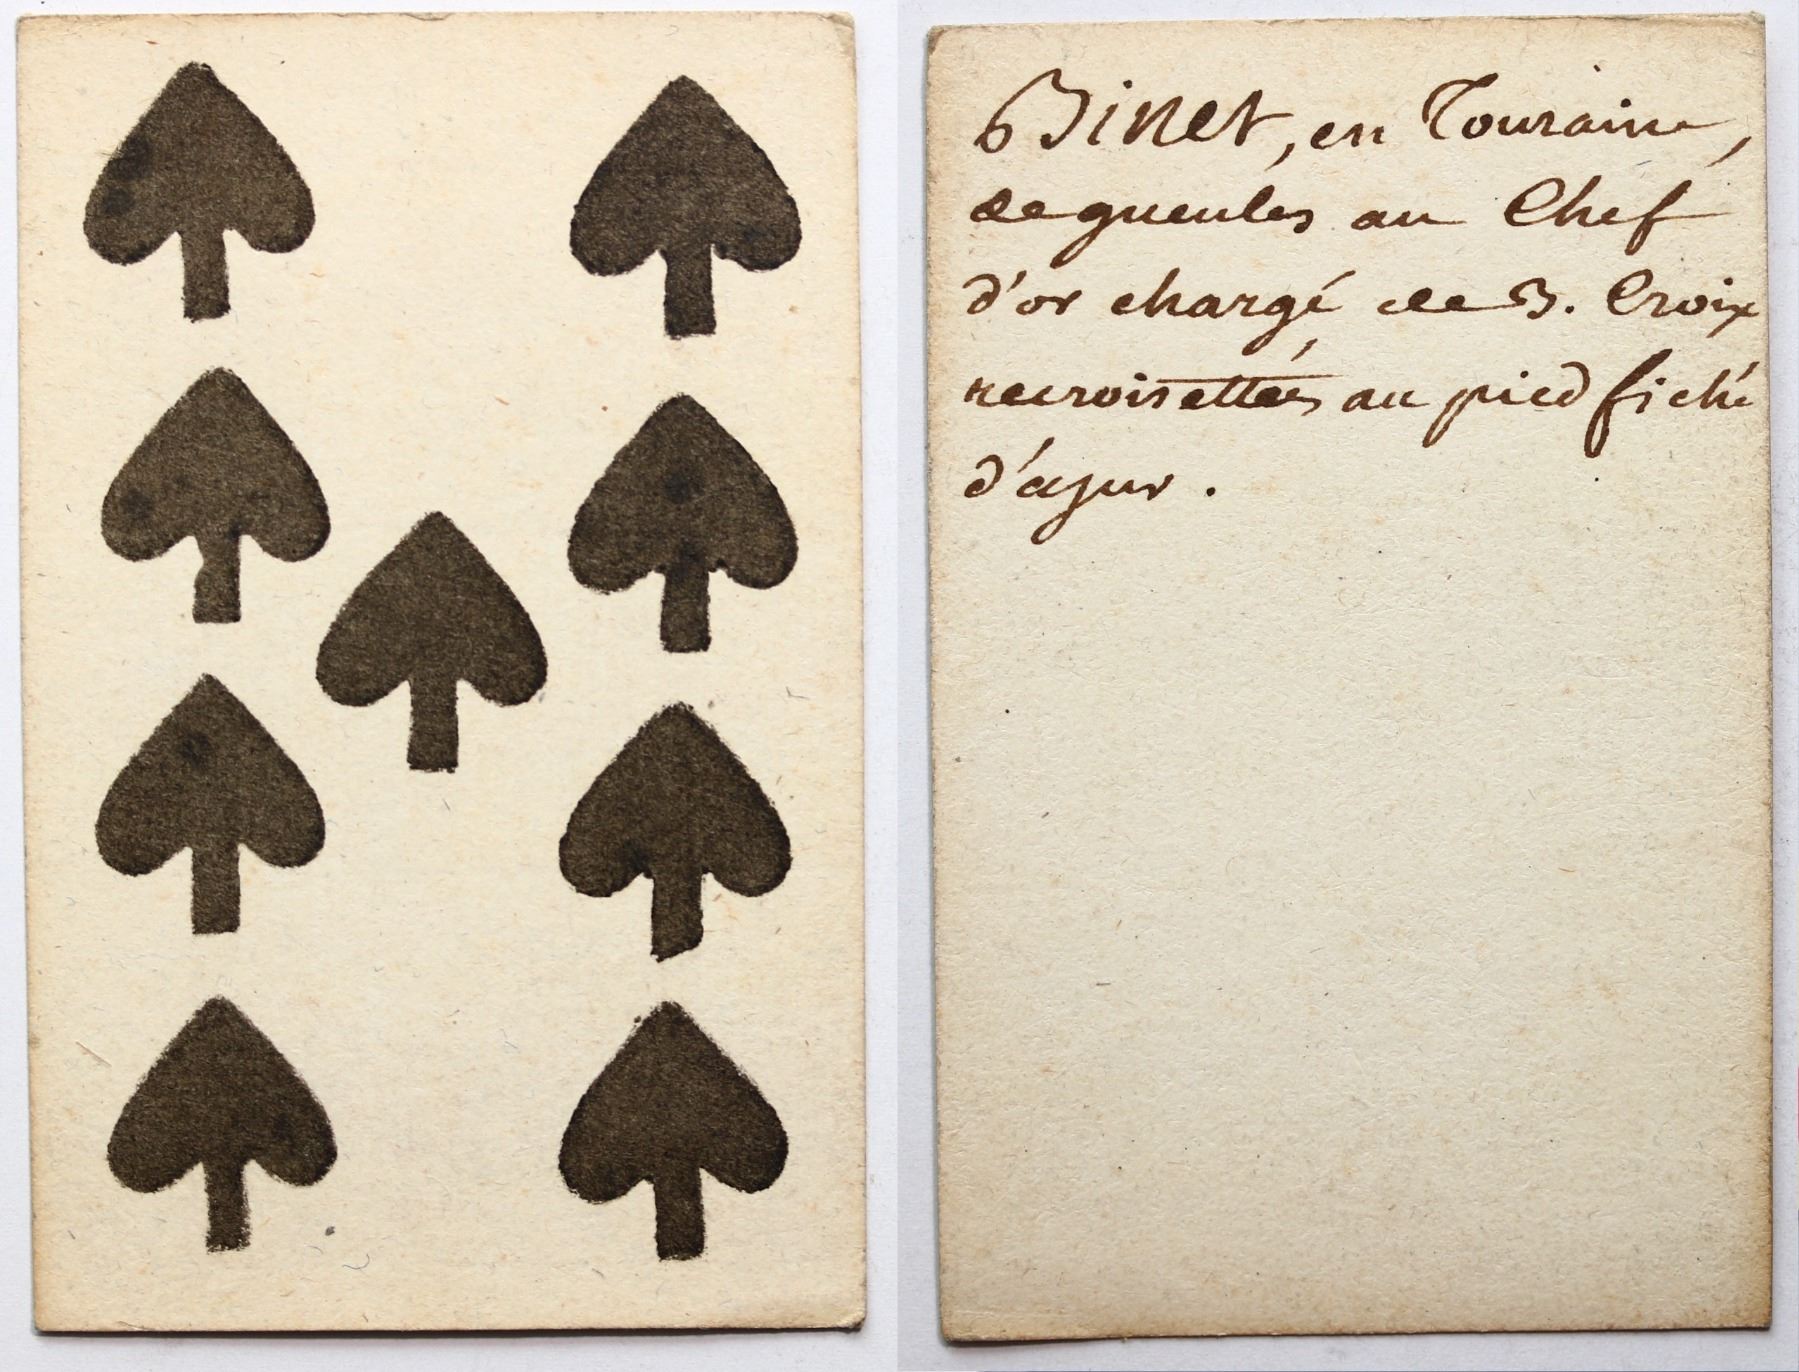 Binet, en Touraine,
de gueules au Chef
d'or chargé de 3. Croix
recroisettés au pied fiché
d'azur.